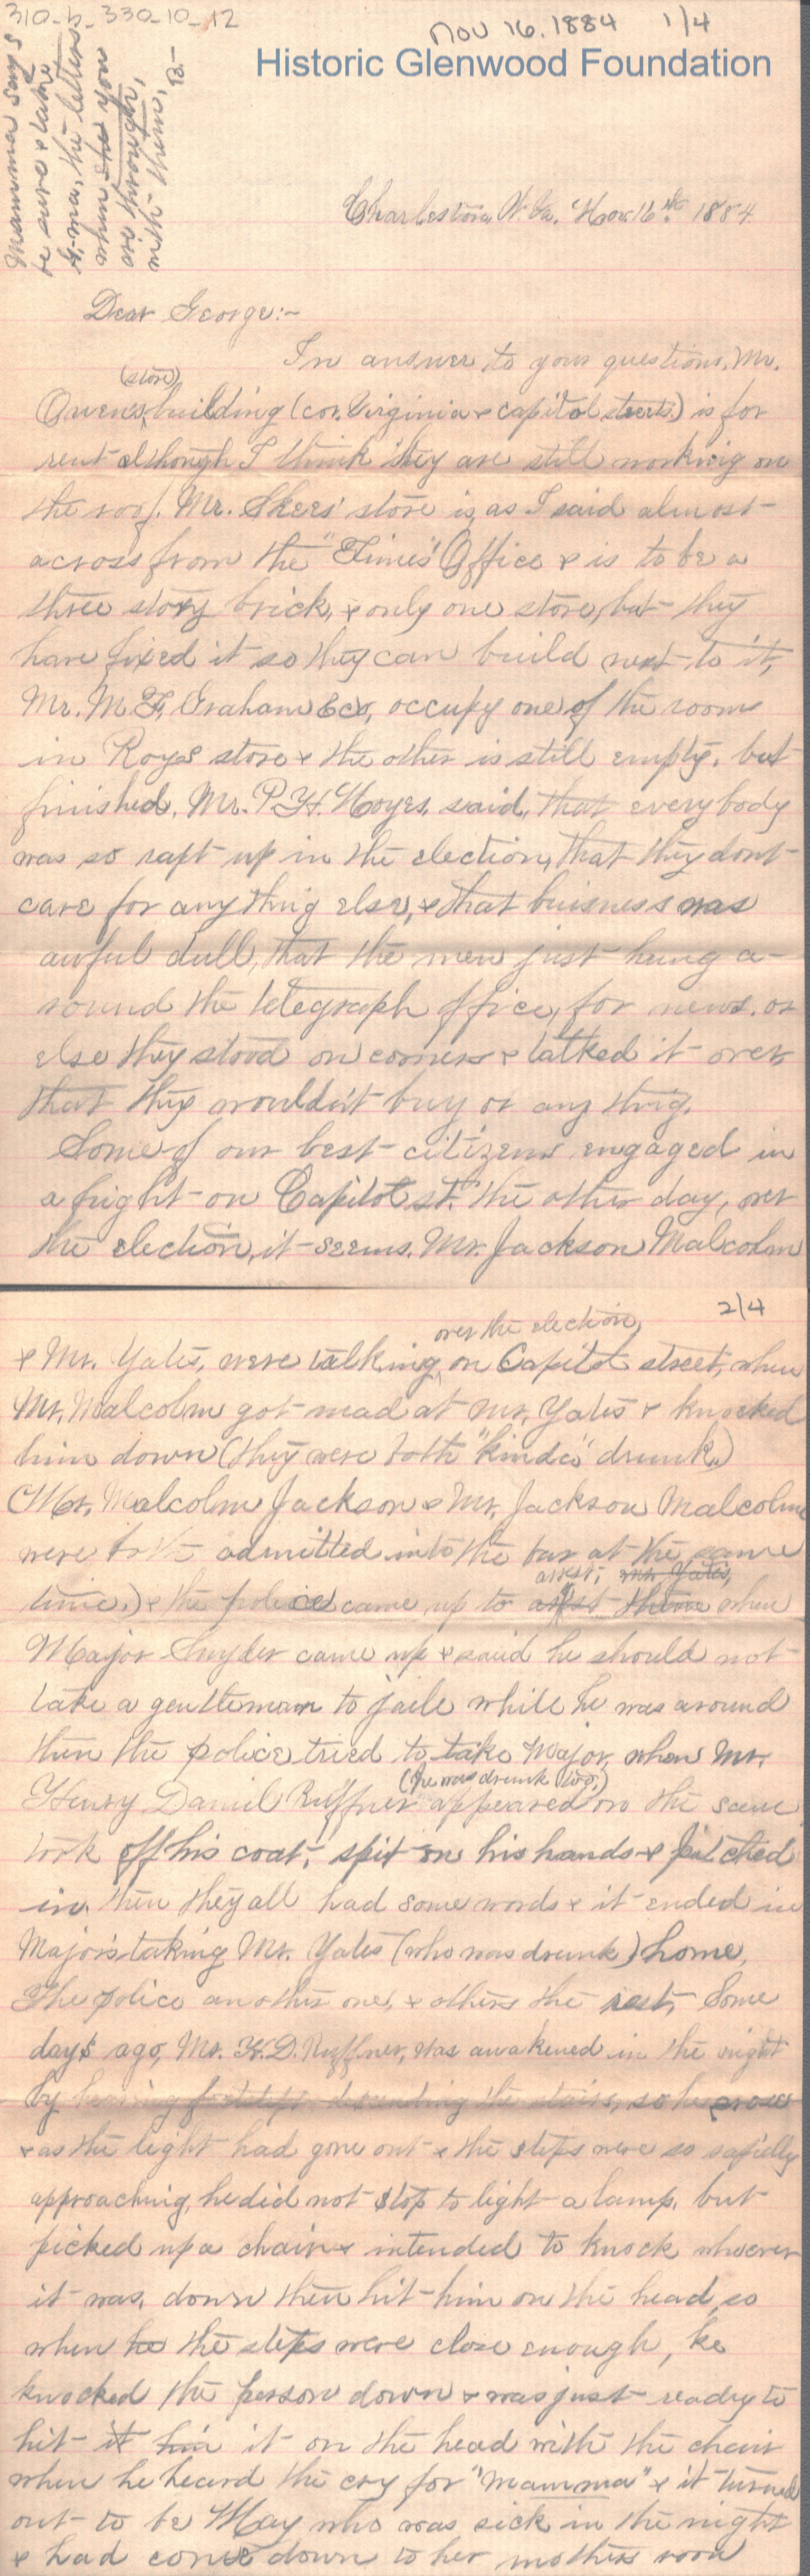 310-b-330-10-12
Nov 16. 1884 1/4
Historic Glenwood Foundation
Mamma says
be sure & take
G.ma, the letters
when she you
are through,
with them,
B.-
Charleston, W. Va. Nov. 16th. 1884.
Dear George:-
In answer to your questions, Mr.
(store)
Owens, building (cor. Virginia & capitol streets.) is for
rent although I think they are still working on
the roof. Mr. Skees' store is, as I said almost
across from the "Times" Office & is to be a
three story brick, & only one store, but they
have fixed it so they can build next to it,
Mr. M. F. Graham & co, occupy one of the rooms
in Roy's store & the other is still empty, but
finished. Mr. P. H. Noyes, said, that everybody
was so rapt up in the election, that they dont
care for any thing else, & that buisness was
awful dull, that the men just hung a-
round the telegraph office, for news, or
else they stood on corners & talked it over
that they wouldn't buy or any thing.
Some of our best citizens engaged in
a fight on Capitol st. the other day, over
the election, it seems, Mr. Jackson Malcolm
2/4
over the election,
& Mr. Yates, were talking, on Capitol street, when
Mr. Malcolm got mad at Mr. Yates & knocked
him down (they were both "kinder" drunk.)
(Mr. Malcolm Jackson & Mr. Jackson Malcolm
were both admitted into the bar at the same
arrest, Mr. Yates,
time.) & the police came up to arrest them when
Major Snyder came up & said he should not
take a gentleman to jaile while he was around
then the police tried to take Major, when Mr.
(he was drunk too,)
Henry Daniel Ruffner appeared on the scene
took off his coat, spit on his hands & pitched
in, then they all had some words & it ended in
Major's taking Mr. Yates (who was drunk) home,
The police another one, & others the rest, Some
days ago, Mr. H. D. Ruffner, was awakened in the night
by hearing footsteps descending the stairs, so he arose
& as the light had gone out & the steps were so rapidly
approaching, he did not stop to light a lamp, but
picked up a chair & intended to knock whoever
it was, down then hit him on the head, so
when he the steps were close enough, he
knocked the person down & was just ready to
hit it him it on the head with the chair
when he heard the cry for "Mamma" & it turned
out to be May who was sick in the night
& had come down to her mothers room